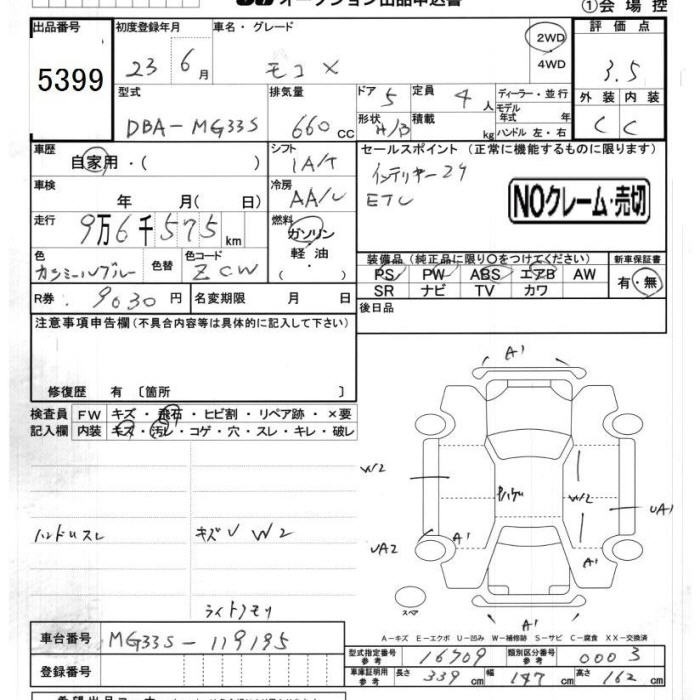 オークション出品申込書
①会場控
出品番号 初度登録年月 車名・グレード 評価点
5399 23 6月 モコ X 2WD 4WD 3.5
型式 排気量 ドア 5 定員 4人 ディーラー・並行 外装 内装
DBA-MG33S 660cc 形状 H/B 積載 kg モデル年式 年 ハンドル 左・右 C C
車歴 シフト セールスポイント (正常に機能するものに限ります)
自家用・( ) IA/T インテリキー2ケ
車検 冷房 ETC
年 月( 日) AA/C NOクレーム・売切
走行 9万6千575km 燃料
ガソリン
軽油
・
( )
色 色替 色コード
カシミールブルー ZCW
装備品 (純正品に限り○をつけてください) 新車保証書
PS PW ABS エアB AW 有・無
SR ナビ TV カワ
R券 9030円 名変期限 月 日
後日品
注意事項申告欄(不具合内容等は具体的に記入して下さい)
修復歴 有 [箇所 ]
検査員 FW キズ・飛石・ヒビ割・リペア跡・×要
記入欄 内装 キズ・汚レ・コゲ・穴・スレ・キレ・破レ
A1
W2 W2 UA1
ハンドルスレ キズU W2
UA2 A1 A1
スペア
ライトクモリ
A1
A-キズ E-エクボ U-凹み W-補修跡 S-サビ C-腐食 XX-交換済
車台番号 MG33S-119195
登録番号
型式指定番号 参考 16709 類別区分番号 参考 0003
車庫証明用 参考 長さ 339cm 幅 147cm 高さ 162cm